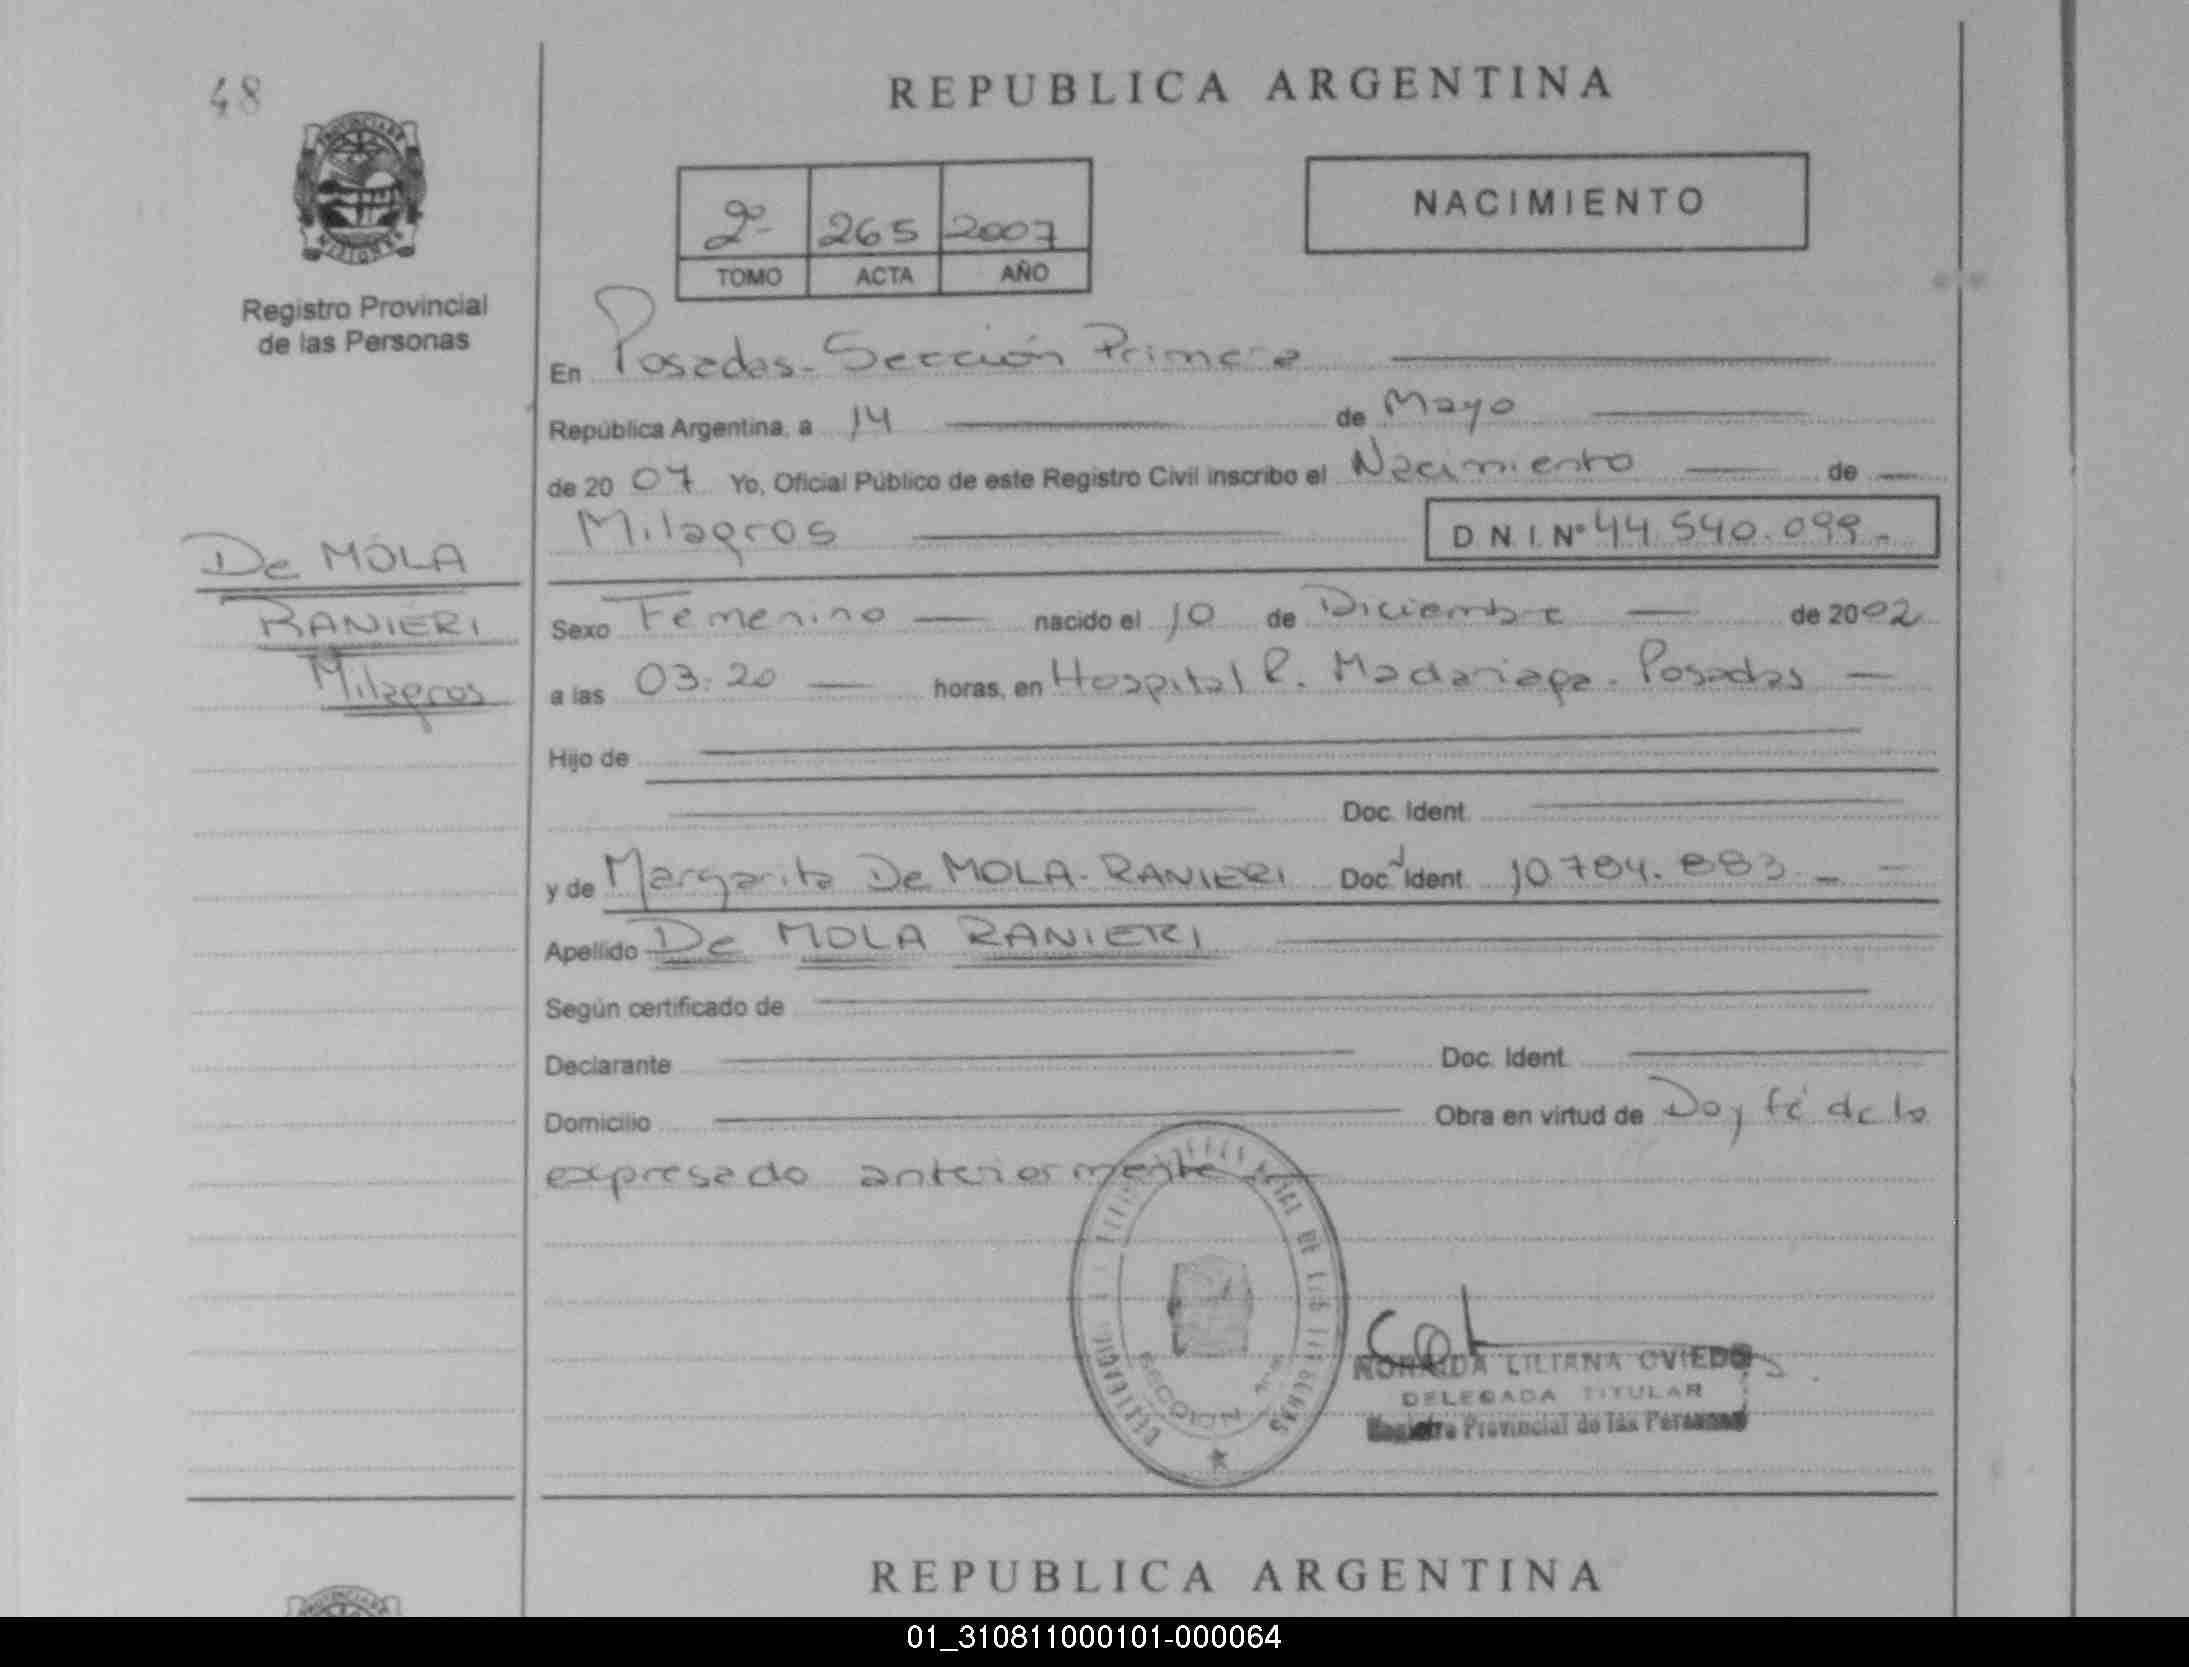 48
REPUBLICA ARGENTINA
PROVINCIA DE
MISIONES
2º 265 2007
TOMO ACTA AÑO
NACIMIENTO
Registro Provincial
de las Personas
En Posadas - Sección Primera
República Argentina, a 14 de Mayo
de 2007 Yo, Oficial Público de este Registro Civil inscribo el Nacimiento de
Milagros D N I. Nº 44.540.099.-
De MOLA
RANIERI
Milagros
Sexo Femenino nacido el 10 de Diciembre de 2002
a las 03:20 horas, en Hospital R. Madariaga - Posadas
Hijo de
Doc. Ident.
y de Margarita De MOLA - RANIERI Doc. Ident. 10.784.883
Apellido De MOLA RANIERI
Según certificado de
Declarante Doc. Ident.
Domicilio Obra en virtud de Doy fé de lo
expresado anteriormente
DE LAS
SECCION
LILIANA OVIEDO
DELEGADA TITULAR
Registro Provincial de las Personas
REPUBLICA ARGENTINA
01_310811000101-000064